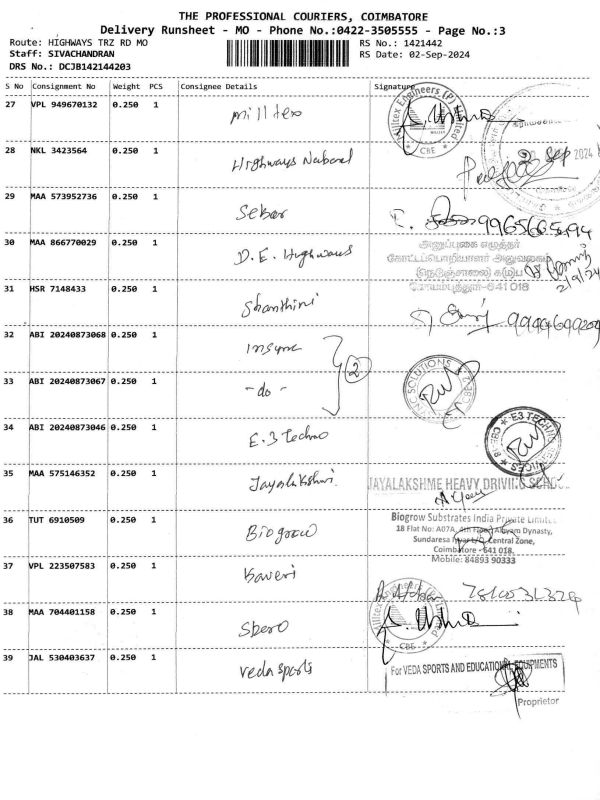 THE PROFESSIONAL COURIERS, COIMBATORE
Delivery Runsheet - MO - Phone No.:0422-3505555 - Page No.:3
Route: HIGHWAYS TRZ RD MO
RS No.: 1421442
Staff: SIVACHANDRAN
RS Date: 02-Sep-2024
DRS No.: DCJB142144203
S No Consignment No Weight PCS Consignee Details Signature
27 VPL 949670132 0.250 1 milltex
28 NKL 3423564 0.250 1 Highways National
29 MAA 573952736 0.250 1 Sekar
30 MAA 866770029 0.250 1 D.E. Highways
அனுப்புகை எழுத்தர்
கோட்டப்பொறியாளர் அலுவலகம்
(நெடுஞ்சாலை)
கோயம்புத்தூர்-641 018
2/9/24
31 HSR 7148433 0.250 1 Shanthini
32 ABI 20240873068 0.250 1 insync
2
33 ABI 20240873067 0.250 1 -do-
34 ABI 20240873046 0.250 1 E.3 Techno
35 MAA 575146352 0.250 1 Jayalakshmi
JAYALAKSHME HEAVY DRIVING
36 TUT 6910509 0.250 1 Biogrow
Biogrow Substrates India Private Limited
18 Flat No: A07A, 4th Floor, Dynasty,
Central Zone,
Coimbatore - 641 018.
Mobile: 84893 90333
37 VPL 223507583 0.250 1 Kaveri
38 MAA 704401158 0.250 1 Spero
39 JAL 530403637 0.250 1 Veda sports
For VEDA SPORTS AND EDUCATIONAL EQUIPMENTS
Proprietor